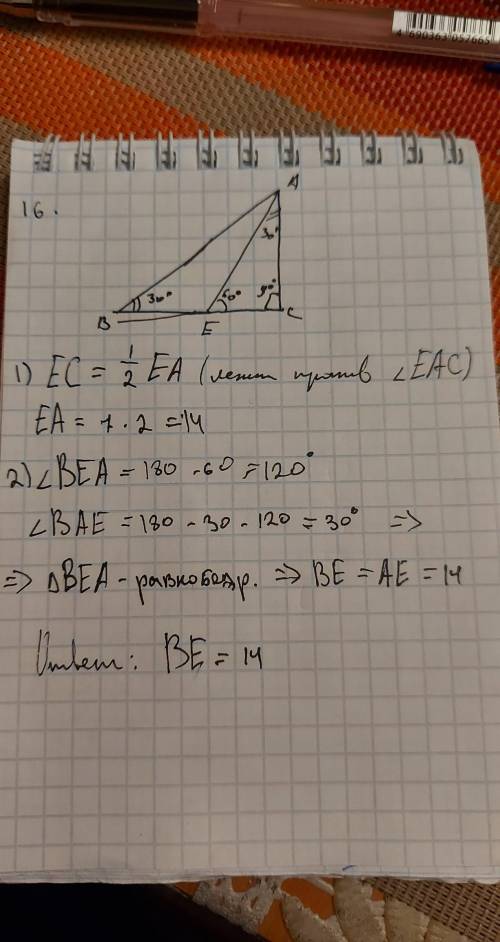 4 690363 057665
16.
A
30°
30°
60°
90°
B
E
C
1) EC = 1/2 EA (лежит против ∠EAC)
EA = 7 · 2 = 14
2) ∠BEA = 180 - 60 = 120°
∠BAE = 180 - 30 - 120 = 30° =>
=> △BEA - равнобедр. => BE = AE = 14
Ответ: BE = 14